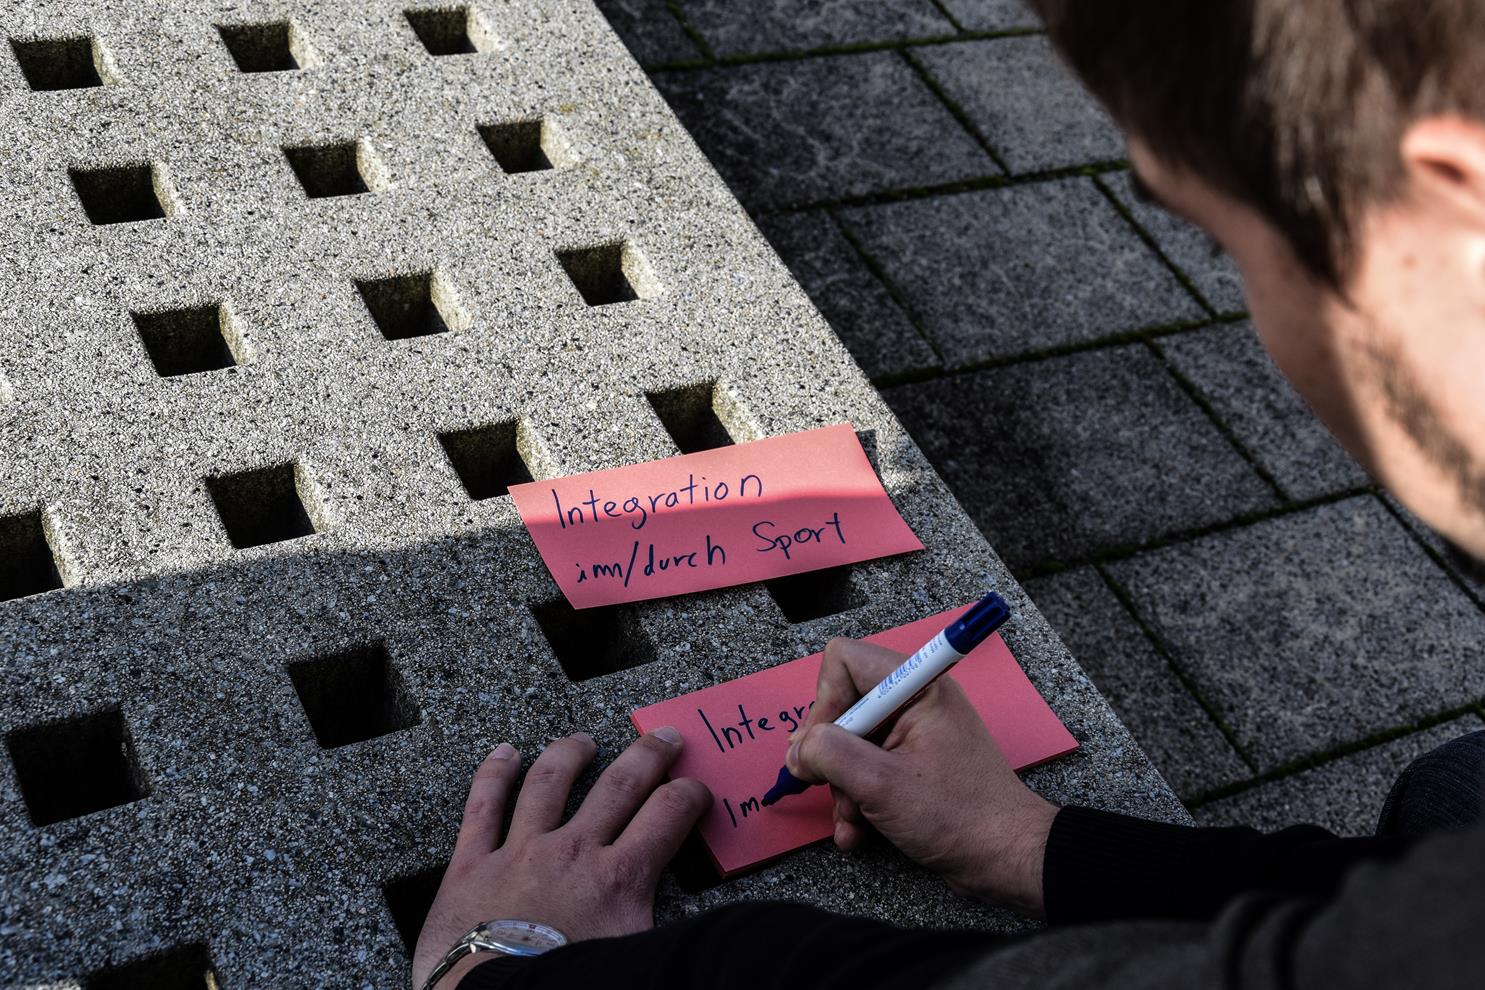 Integration
im/durch Sport
Integr
Im